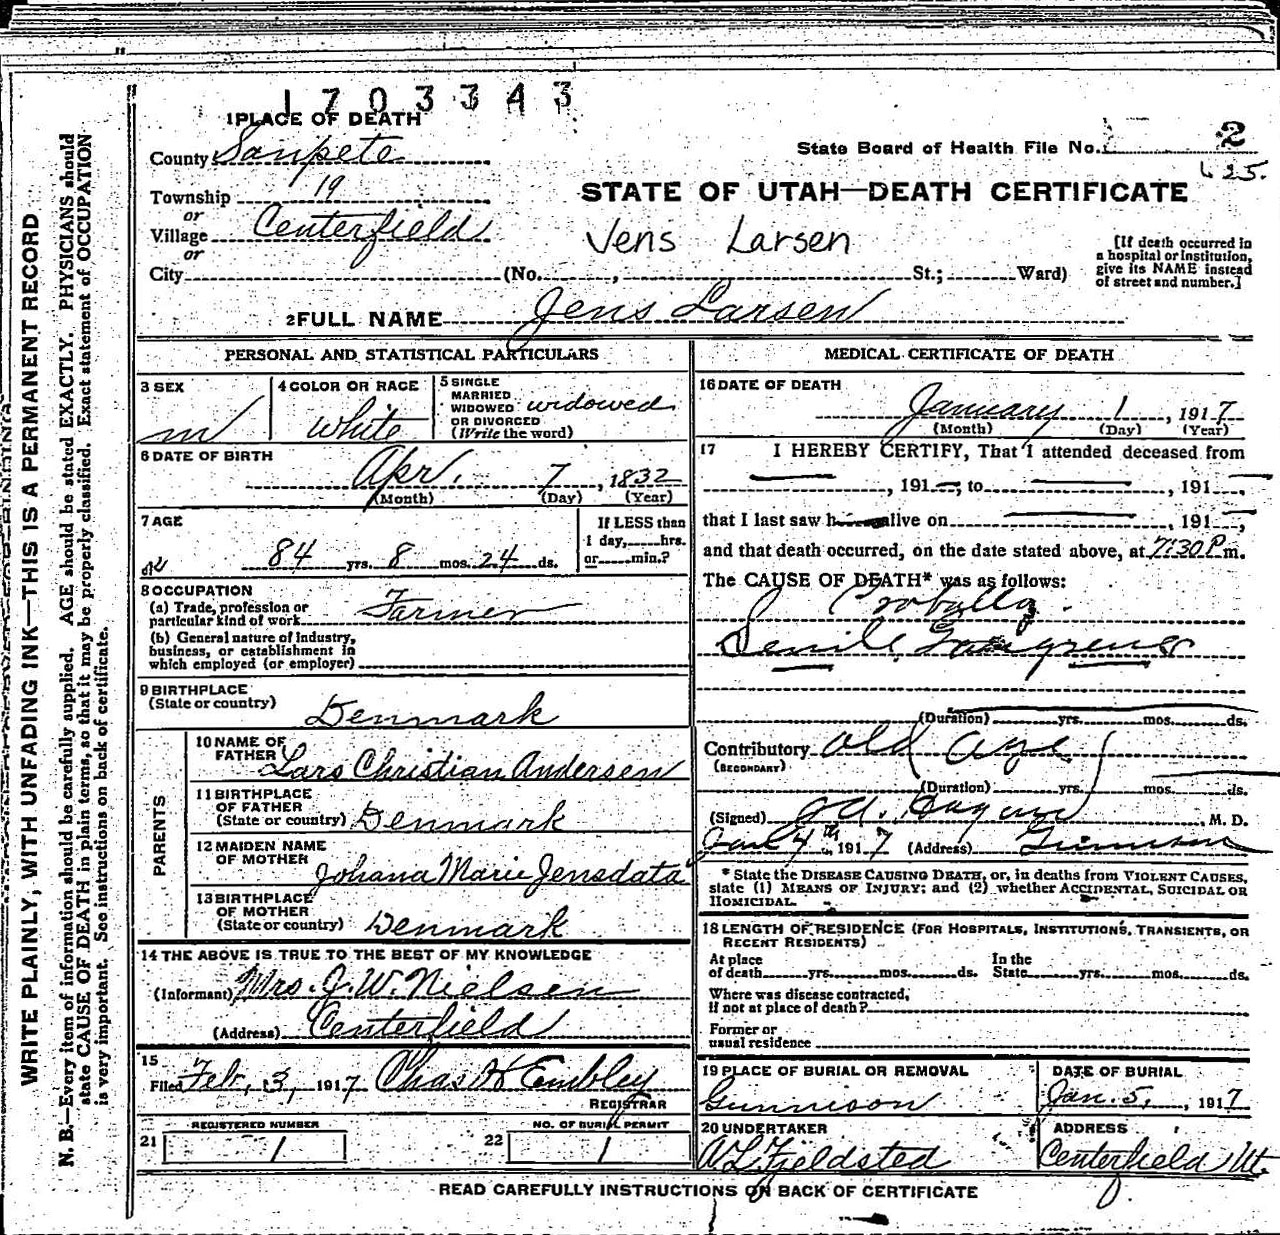 1703343
1 PLACE OF DEATH
County Sanpete
State Board of Health File No. 2
625.
Township 19
STATE OF UTAH—DEATH CERTIFICATE
or
Village Centerfield
Jens Larsen
or
City (No. , St.; Ward)
[If death occurred in
a hospital or institution,
give its NAME instead
of street and number.]
2 FULL NAME Jens Larsen
PERSONAL AND STATISTICAL PARTICULARS
3 SEX
m
4 COLOR OR RACE
White
5 SINGLE
MARRIED
WIDOWED widowed
OR DIVORCED
(Write the word)
6 DATE OF BIRTH
Apr. 7, 1832
(Month) (Day) (Year)
7 AGE
84 yrs. 8 mos. 24 ds.
If LESS than
1 day, hrs.
or min.?
8 OCCUPATION
(a) Trade, profession or
particular kind of work Farmer
(b) General nature of industry,
business, or establishment in
which employed (or employer)
9 BIRTHPLACE
(State or country) Denmark
PARENTS
10 NAME OF
FATHER Lars Christian Andersen
11 BIRTHPLACE
OF FATHER
(State or country) Denmark
12 MAIDEN NAME
OF MOTHER Johana Marie Jensdata
13 BIRTHPLACE
OF MOTHER
(State or country) Denmark
14 THE ABOVE IS TRUE TO THE BEST OF MY KNOWLEDGE
(Informant) Mrs. J. W. Nielsen
(Address) Centerfield
15
Filed Feb. 3, 1917 Chas H Embley
REGISTRAR
21 REGISTERED NUMBER
1
22 NO. OF BURIAL PERMIT
1
MEDICAL CERTIFICATE OF DEATH
16 DATE OF DEATH
January 1, 1917
(Month) (Day) (Year)
17 I HEREBY CERTIFY, That I attended deceased from
, 191 , to , 191 ,
that I last saw h alive on , 191 ,
and that death occurred, on the date stated above, at 7:30 P m.
The CAUSE OF DEATH* was as follows:
Probably
Senile Gangrene
(Duration) yrs. mos. ds.
Contributory old age
(SECONDARY)
(Duration) yrs. mos. ds.
(Signed) M. D.
Jan 4th, 1917 (Address) Gunnison
* State the DISEASE CAUSING DEATH, or, in deaths from VIOLENT CAUSES,
state (1) MEANS OF INJURY; and (2) whether ACCIDENTAL, SUICIDAL OR
HOMICIDAL.
18 LENGTH OF RESIDENCE (FOR HOSPITALS, INSTITUTIONS, TRANSIENTS, OR
RECENT RESIDENTS)
At place
of death yrs. mos. ds.
In the
State yrs. mos. ds.
Where was disease contracted,
if not at place of death?
Former or
usual residence
19 PLACE OF BURIAL OR REMOVAL
Gunnison
DATE OF BURIAL
Jan. 5, 1917
20 UNDERTAKER
A L Fjeldsted
ADDRESS
Centerfield Ut.
READ CAREFULLY INSTRUCTIONS ON BACK OF CERTIFICATE
WRITE PLAINLY, WITH UNFADING INK—THIS IS A PERMANENT RECORD
N. B.—Every item of information should be carefully supplied. AGE should be stated EXACTLY. PHYSICIANS should
state CAUSE OF DEATH in plain terms, so that it may be properly classified. Exact statement of OCCUPATION
is very important. See instructions on back of certificate.